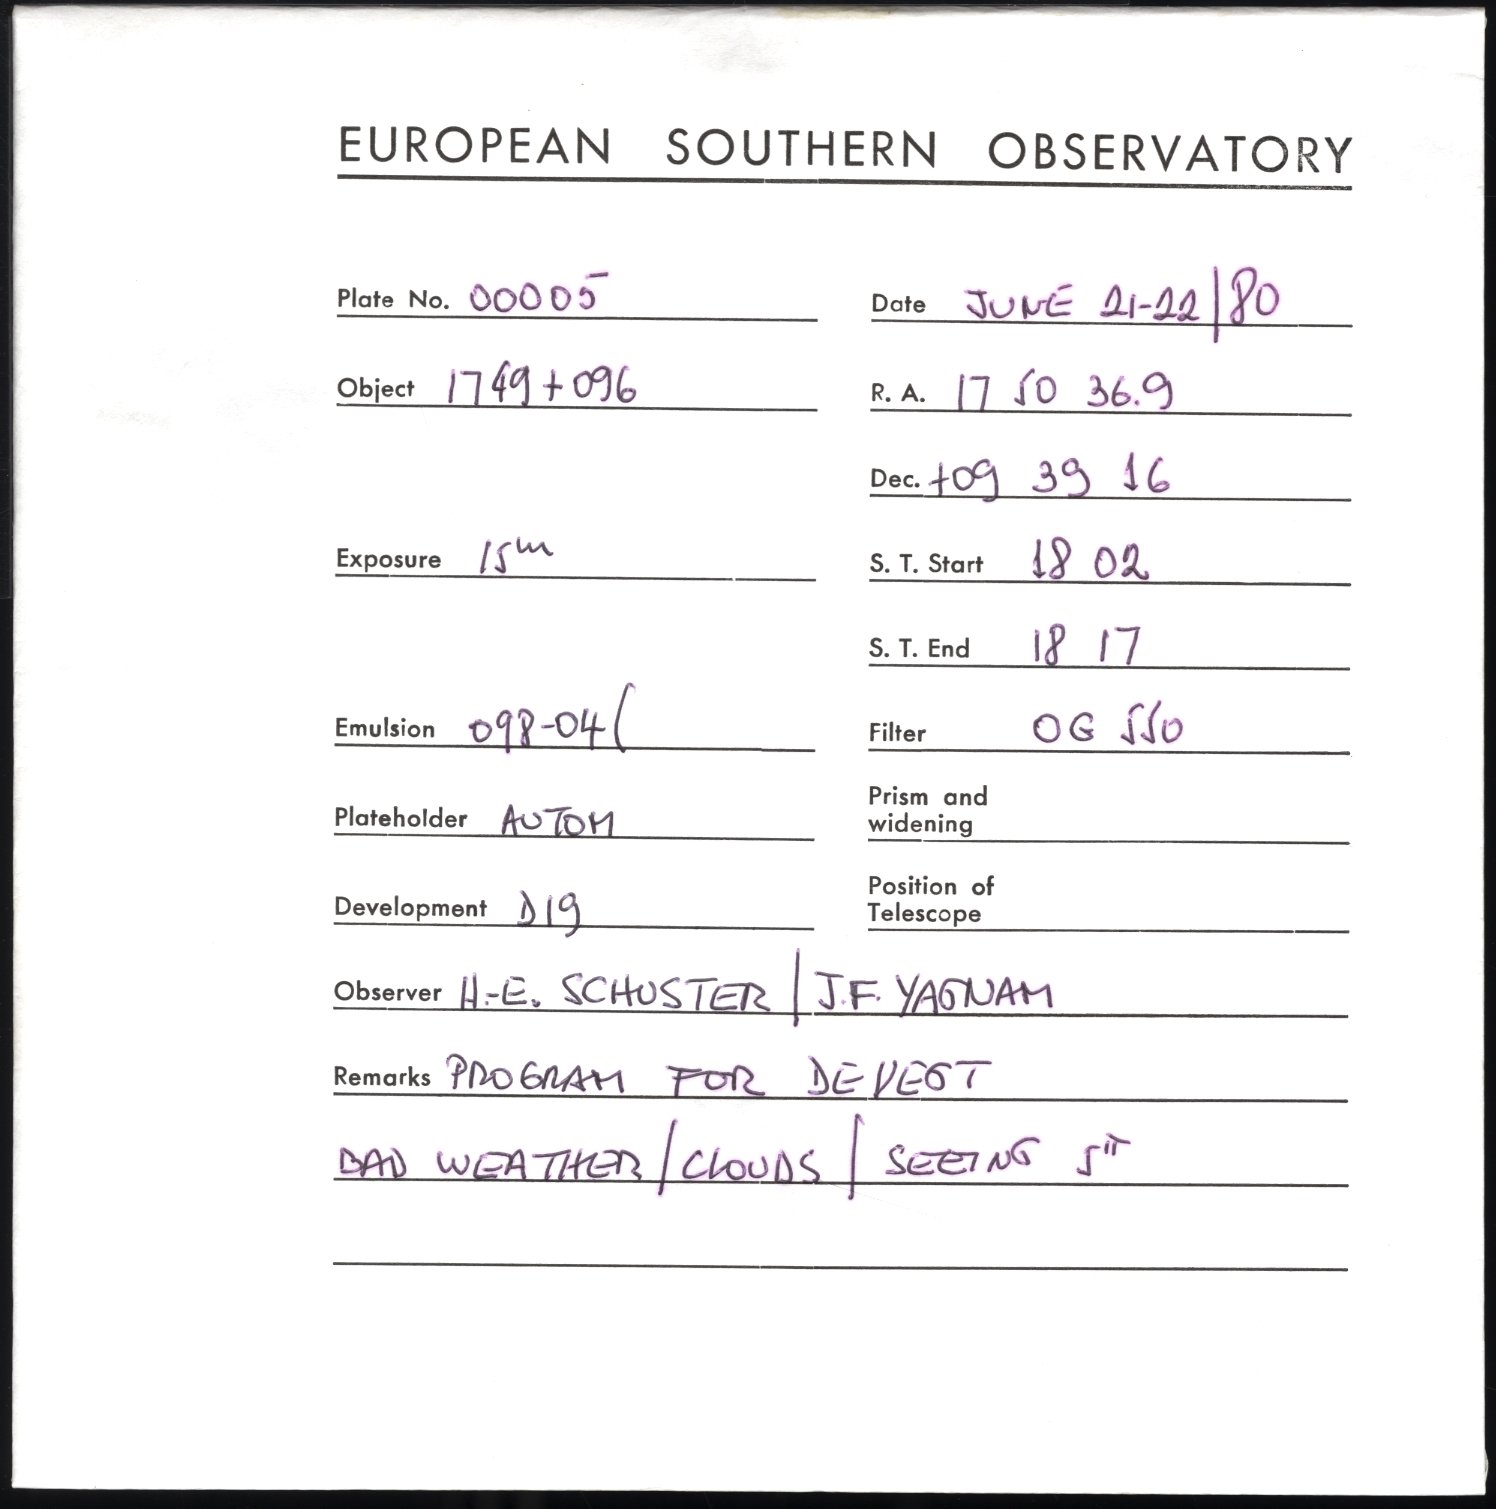 EUROPEAN SOUTHERN OBSERVATORY
Plate No. 00005 Date JUNE 21-22/80
Object 1749+096 R. A. 17 50 36.9
Dec. +09 39 16
Exposure 15m S. T. Start 18 02
S. T. End 18 17
Emulsion 098-04( Filter OG 550
Plateholder AUTOM Prism and widening
Development D19 Position of Telescope
Observer H.-E. SCHUSTER / J.F. YAGNAM
Remarks PROGRAM FOR DEVEGT
BAD WEATHER / CLOUDS / SEEING 5"